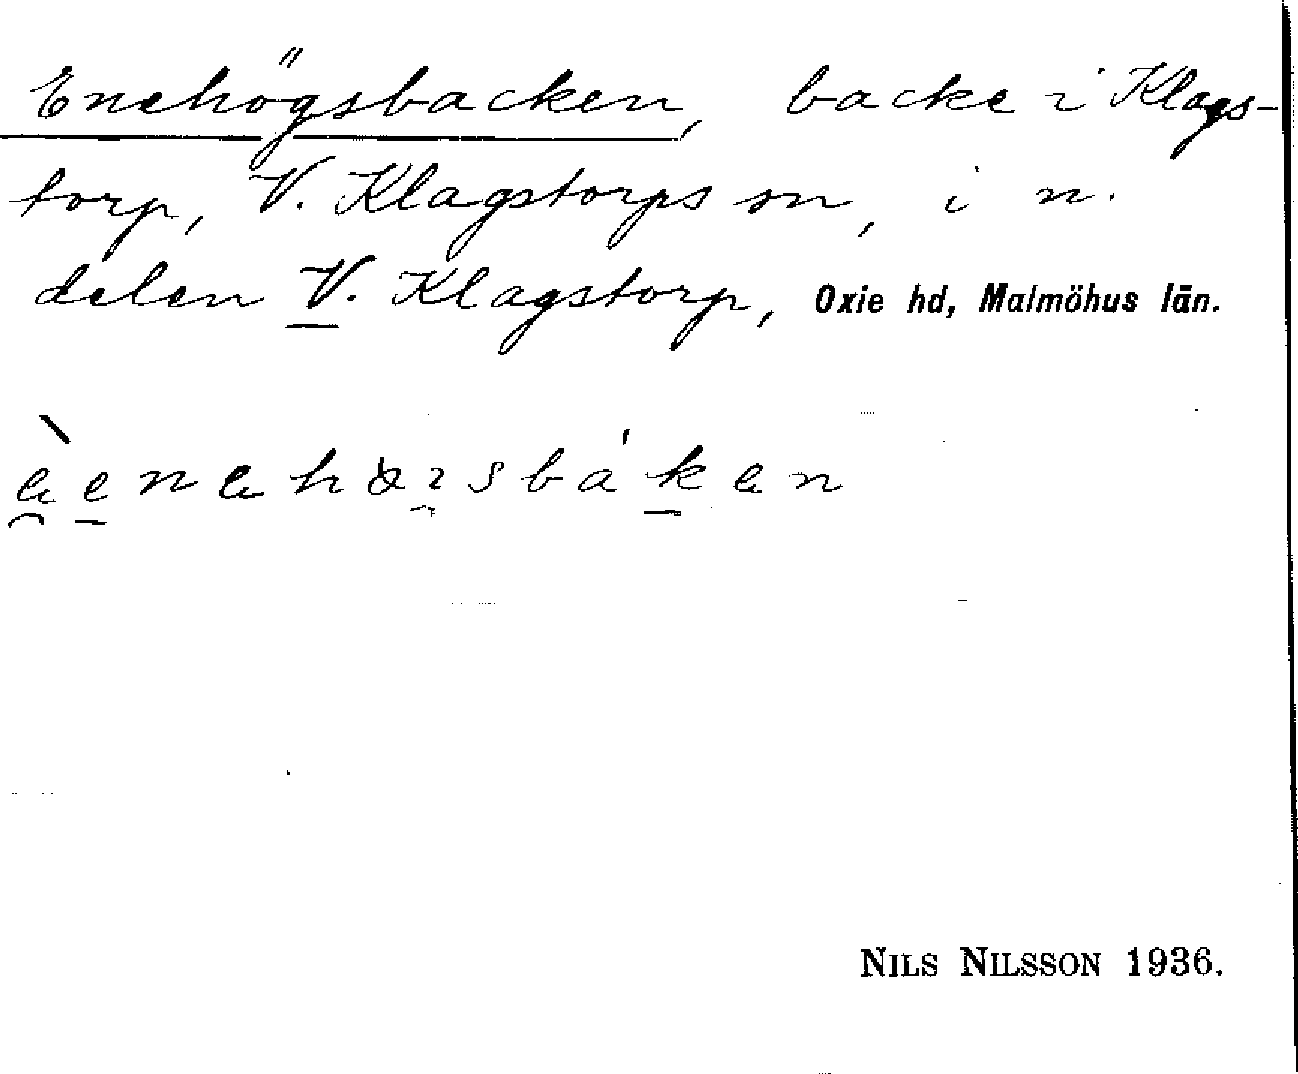 Enehögsbacken, backe i Klags-
torp, V. Klagstorps sn, i n.
delen V. Klagstorp, Oxie hd, Malmöhus län.
NILS NILSSON 1936.